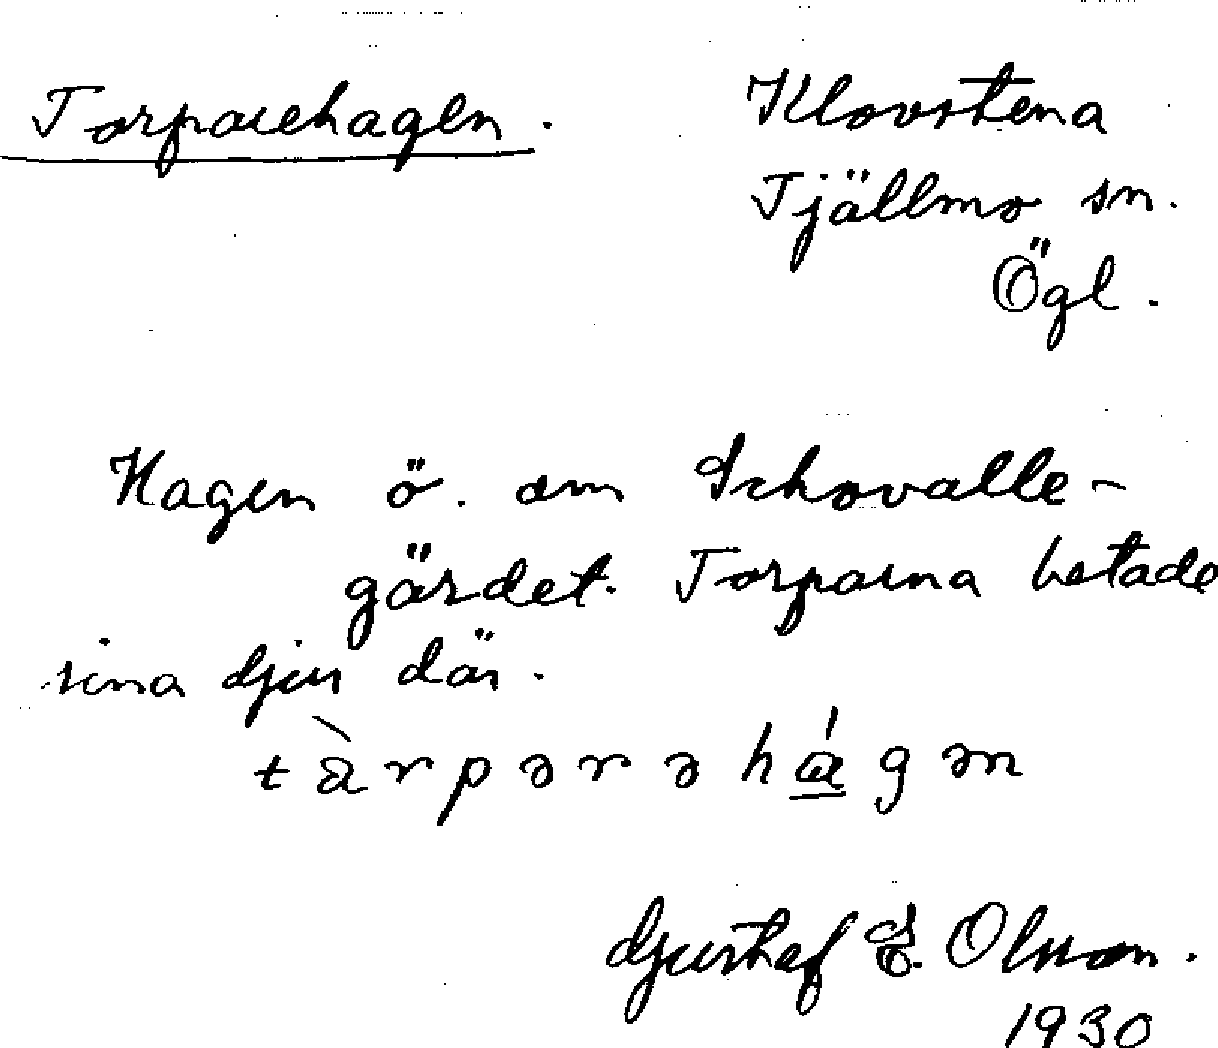 Torparehagen.
Klovstena
Tjällmo sn.
Ögl.
Hagen ö. om Ichovalle-
gärdet. Torparna betade
sina djur där.
tàrpərəhágən
Gusthaf E. Olsson.
1930